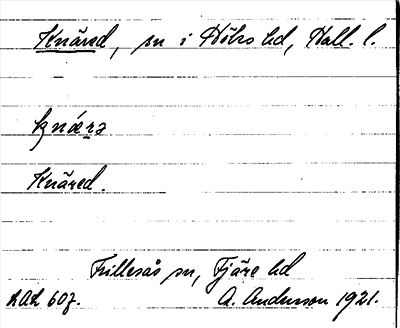 Knäred, sn i Höks hd, Hall. l.
knǽrə
Knäred.
Frillesås sn, Fjäre hd
LAL 607. A. Anderson 1921.